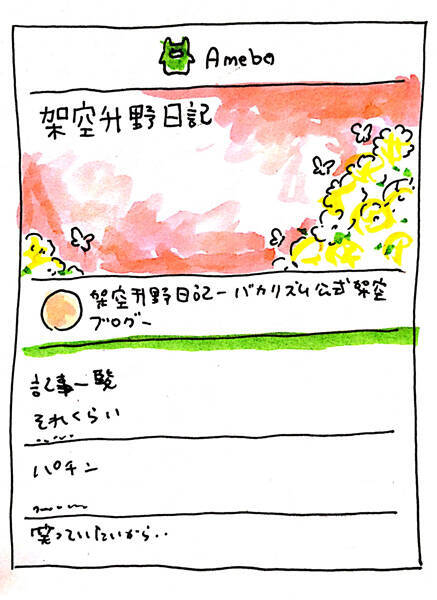 Ameba
架空升野日記
架空升野日記ーバカリズム公式架空
ブログー
記事一覧
それくらい
パチン
笑っていたいから‥